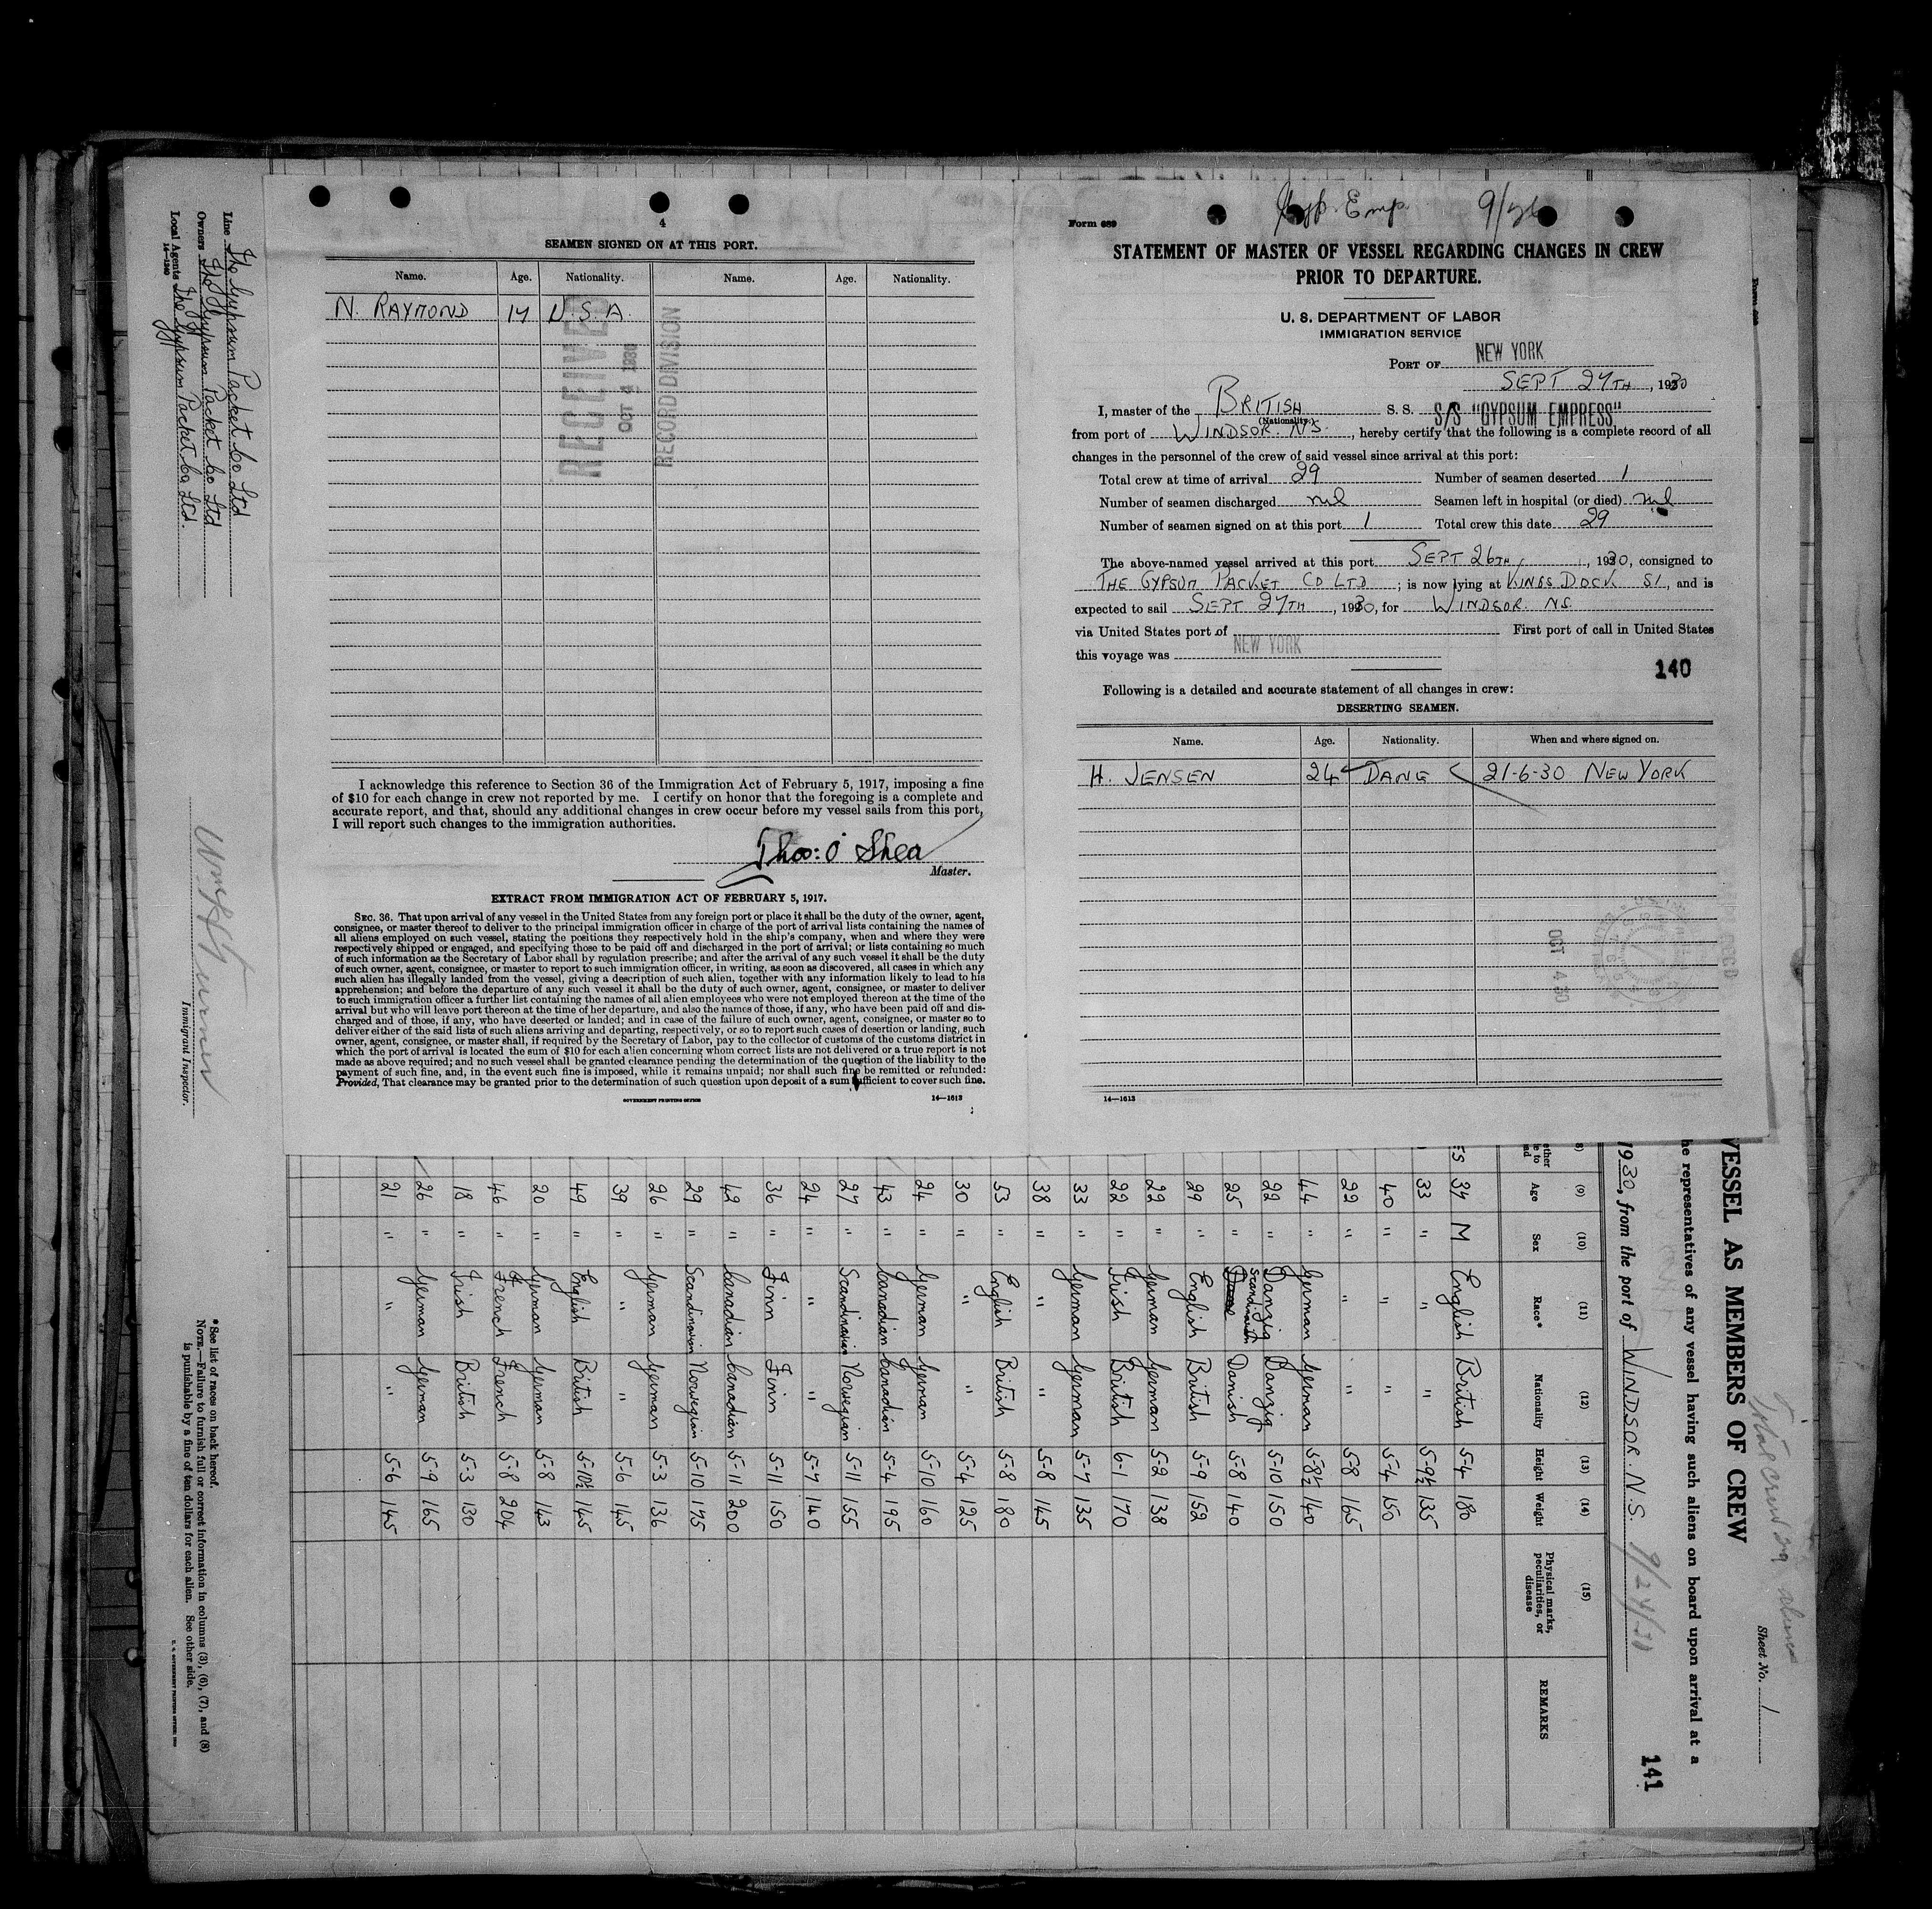 Gyp. Emp. 9/26
4
SEAMEN SIGNED ON AT THIS PORT.
Name. Age. Nationality. Name. Age. Nationality.
N. RAYMOND 17 U.S.A.
RECEIVED
OCT 4 1930
RECORD DIVISION
I acknowledge this reference to Section 36 of the Immigration Act of February 5, 1917, imposing a fine
of $10 for each change in crew not reported by me. I certify on honor that the foregoing is a complete and
accurate report, and that, should any additional changes in crew occur before my vessel sails from this port,
I will report such changes to the immigration authorities.
Thos: O'Shea
Master.
EXTRACT FROM IMMIGRATION ACT OF FEBRUARY 5, 1917.
SEC. 36. That upon arrival of any vessel in the United States from any foreign port or place it shall be the duty of the owner, agent,
consignee, or master thereof to deliver to the principal immigration officer in charge of the port of arrival lists containing the names of
all aliens employed on such vessel, stating the positions they respectively hold in the ship's company, when and where they were
respectively shipped or engaged, and specifying those to be paid off and discharged in the port of arrival; or lists containing so much
of such information as the Secretary of Labor shall by regulation prescribe; and after the arrival of any such vessel it shall be the duty
of such owner, agent, consignee, or master to report to such immigration officer, in writing, as soon as discovered, all cases in which any
such alien has illegally landed from the vessel, giving a description of such alien, together with any information likely to lead to his
apprehension; and before the departure of any such vessel it shall be the duty of such owner, agent, consignee, or master to deliver
to such immigration officer a further list containing the names of all alien employees who were not employed thereon at the time of the
arrival but who will leave port thereon at the time of her departure, and also the names of those, if any, who have been paid off and dis-
charged and of those, if any, who have deserted or landed; and in case of the failure of such owner, agent, consignee, or master so to
deliver either of the said lists of such aliens arriving and departing, respectively, or so to report such cases of desertion or landing, such
owner, agent, consignee, or master shall, if required by the Secretary of Labor, pay to the collector of customs of the customs district in
which the port of arrival is located the sum of $10 for each alien concerning whom correct lists are not delivered or a true report is not
made as above required; and no such vessel shall be granted clearance pending the determination of the question of the liability to the
payment of such fine, and, in the event such fine is imposed, while it remains unpaid; nor shall such fine be remitted or refunded:
Provided, That clearance may be granted prior to the determination of such question upon deposit of a sum sufficient to cover such fine.
GOVERNMENT PRINTING OFFICE
14—1613
Form 689
STATEMENT OF MASTER OF VESSEL REGARDING CHANGES IN CREW
PRIOR TO DEPARTURE.
U. S. DEPARTMENT OF LABOR
IMMIGRATION SERVICE
PORT OF NEW YORK
SEPT 27TH, 1930
I, master of the BRITISH S. S. S/S "GYPSUM EMPRESS"
(Nationality.)
from port of WINDSOR. N.S., hereby certify that the following is a complete record of all
changes in the personnel of the crew of said vessel since arrival at this port:
Total crew at time of arrival 29 Number of seamen deserted 1
Number of seamen discharged nil Seamen left in hospital (or died) nil
Number of seamen signed on at this port 1 Total crew this date 29
The above-named vessel arrived at this port SEPT 26TH, 1930, consigned to
THE GYPSUM PACKET CO LTD; is now lying at KINGS DOCK SI, and is
expected to sail SEPT 27TH, 1930, for WINDSOR. NS.
via United States port of First port of call in United States
this voyage was NEW YORK
140
Following is a detailed and accurate statement of all changes in crew:
DESERTING SEAMEN.
Name. Age. Nationality. When and where signed on.
H. JENSEN 24 DANE 21-6-30 NEW YORK
OCT 4 30
14—1613
Line The Gypsum Packet Co Ltd
Owners The Gypsum Packet Co Ltd
Local Agents The Gypsum Packet Co Ltd.
14—1240
Immigrant Inspector.
Total crew 29 aliens
Sheet No. 1
VESSEL AS MEMBERS OF CREW
he representatives of any vessel having such aliens on board upon arrival at a
1930, from the port of WINDSOR. N.S. 9/27/30
141
(9) (10) (11) (12) (13) (14) (15)
Age Sex Race* Nationality Height Weight Physical marks, peculiarities, or disease REMARKS
37 M English British 5-4 180
33 " " " 5-9½ 135
40 " " " 5-4 150
22 " " " 5-8 165
44 " German German 5-8½ 140
22 " Danzig Danzig 5-10 150
25 " Scandinavian Danish 5-8 140
29 " English British 5-9 152
22 " German German 5-2 138
22 " Irish British 6-1 170
33 " German German 5-7 135
38 " " " 5-8 145
53 " English British 5-8 180
30 " " " 5-4 125
24 " German German 5-10 160
43 " Canadian Canadian 5-4 195
27 " Scandinavian Norwegian 5-11 155
24 " " " 5-7 140
36 " Finn Finn 5-11 150
42 " Canadian Canadian 5-11 200
29 " Scandinavian Norwegian 5-10 175
26 " German German 5-3 136
39 " " " 5-6 145
49 " English British 5-10½ 165
20 " German German 5-8 143
46 " French French 5-8 204
18 " Irish British 5-3 130
26 " German German 5-9 165
21 " " " 5-6 145
* See list of races on back hereof.
NOTE.—Failure to furnish full or correct information in columns (3), (6), (7), and (8)
is punishable by a fine of ten dollars for each alien. See other side.